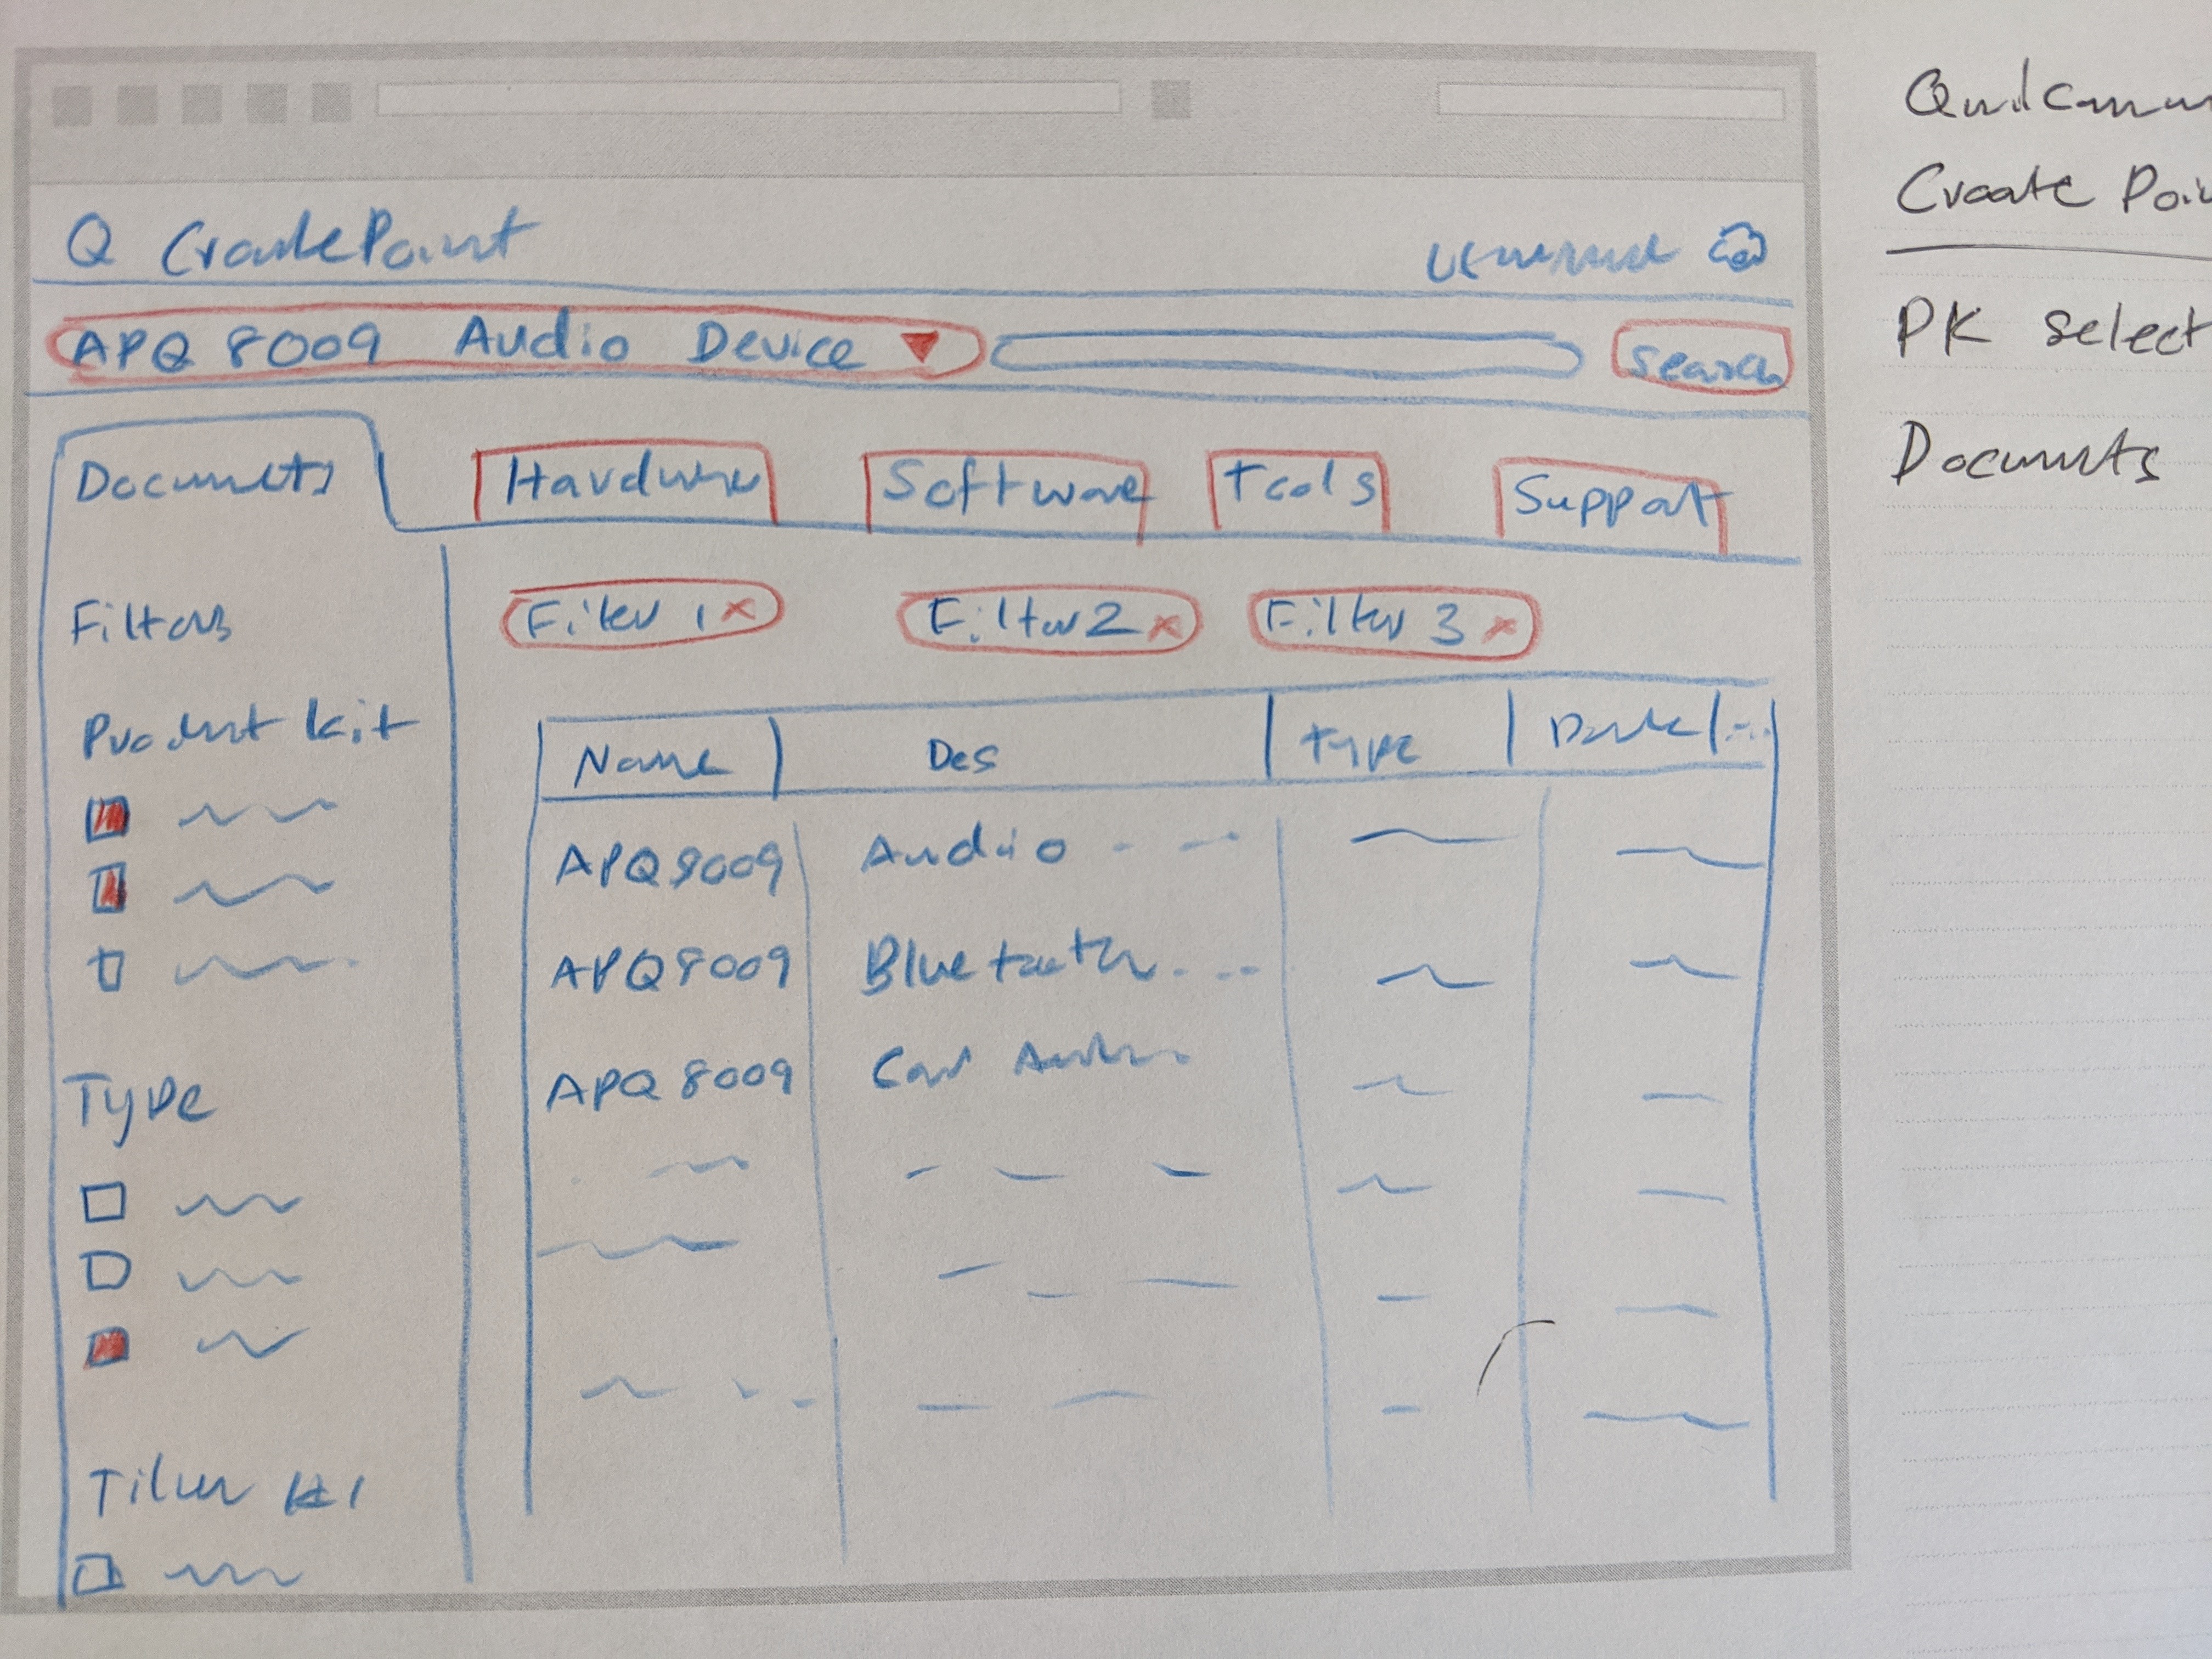 Q CreatePoint
APQ 8009 Audio Device search
Documents Hardware Software Tools Support
Filters Filter 1 x Filter 2 x Filter 3 x
Product kit
Name Des Type Date ...
APQ8009 Audio
APQ8009 Bluetooth...
APQ8009 Car
Type
Create
PK select
Documents